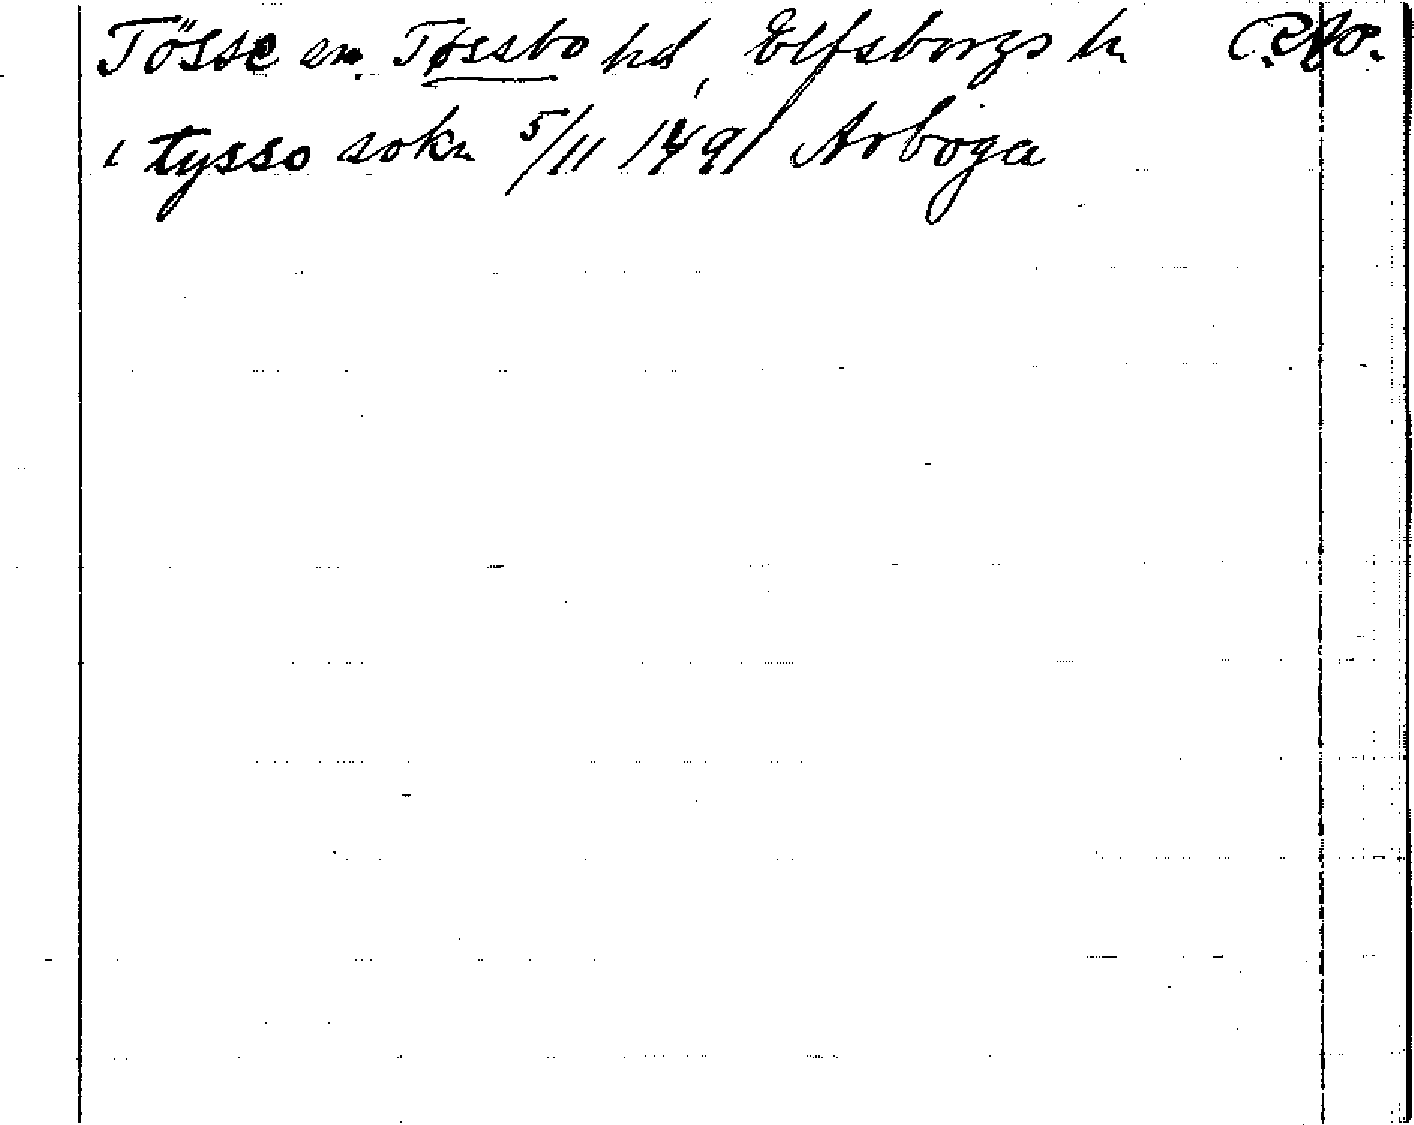 Tösse sn. Tössbo hd, Elfsborgs ln RAp.
i tysso sokn 5/11 1491 Arboga